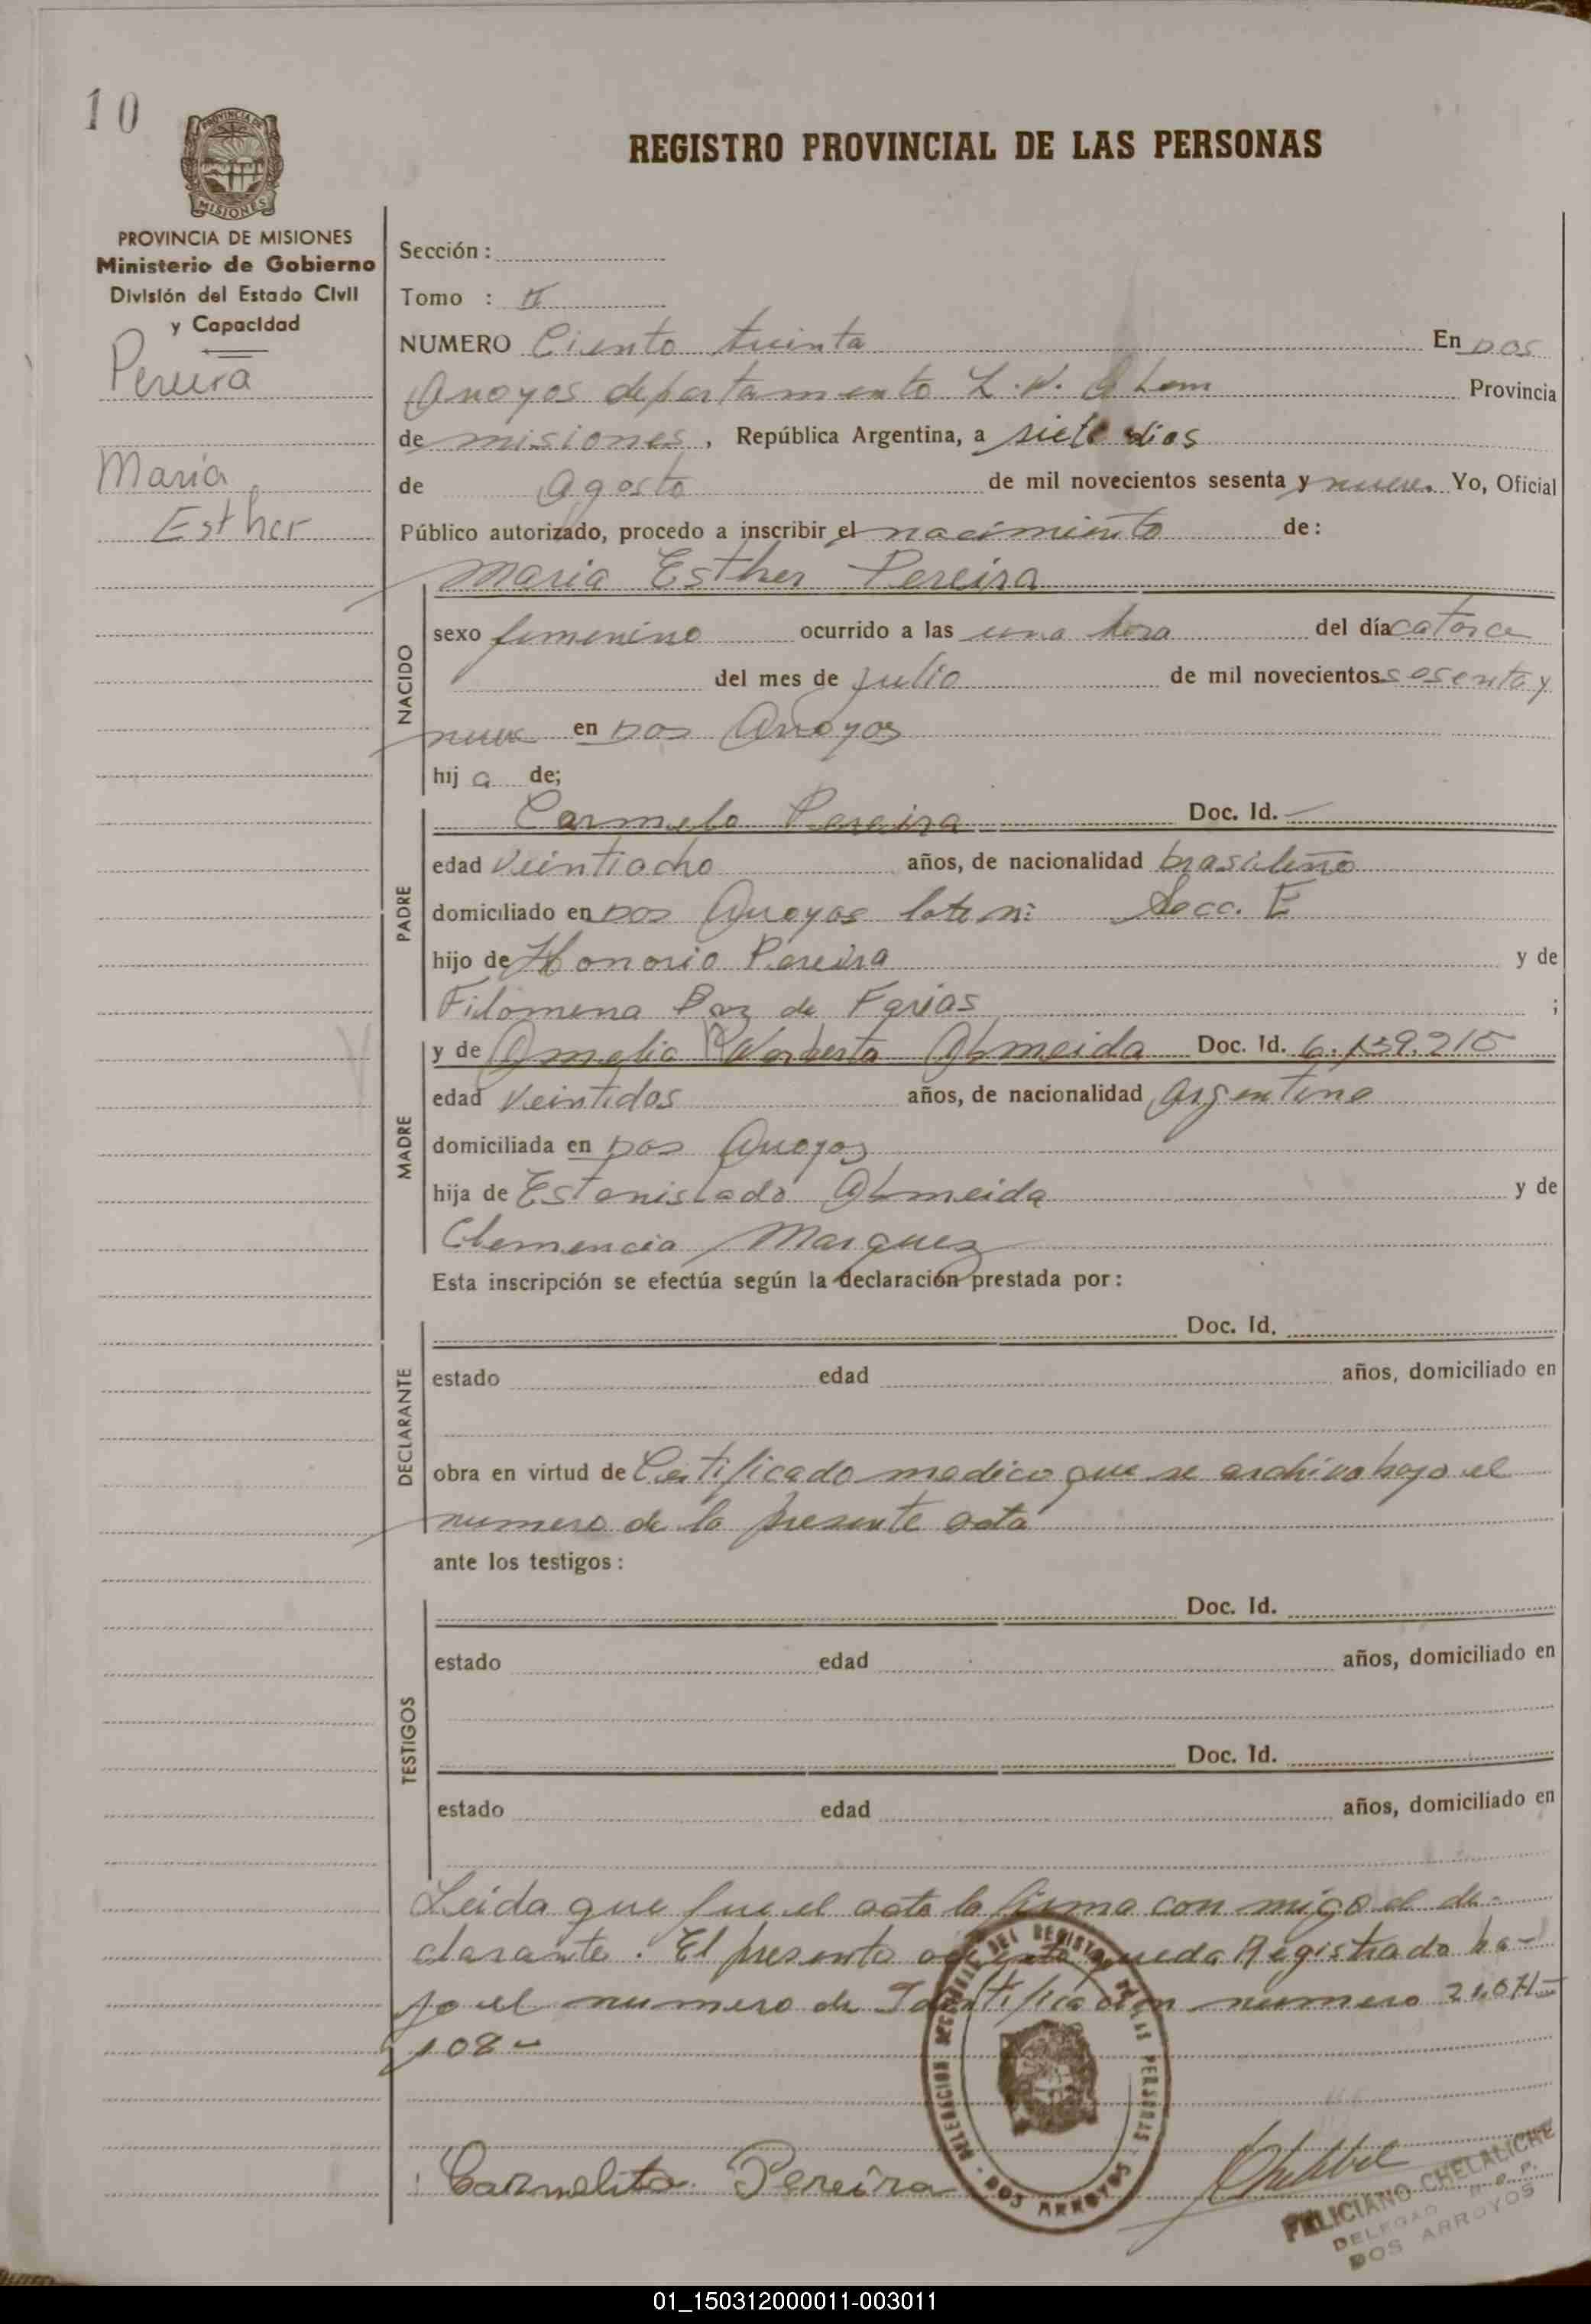 10
PROVINCIA DE
MISIONES
REGISTRO PROVINCIAL DE LAS PERSONAS
PROVINCIA DE MISIONES
Ministerio de Gobierno
División del Estado Civil
y Capacidad
Pereira
Maria
Esther
Sección:
Tomo : II
NUMERO Ciento treinta En Dos
Arroyos departamento L. N. Alem Provincia
de misiones, República Argentina, a siete dias
de Agosto de mil novecientos sesenta y nueve. Yo, Oficial
Público autorizado, procedo a inscribir el nacimiento de:
Maria Esther Pereira
NACIDO
sexo femenino ocurrido a las una hora del día catorce
del mes de julio de mil novecientos sesenta y
nueve en Dos Arroyos
hij a de;
PADRE
Carmelo Pereira Doc. Id. —
edad veintiocho años, de nacionalidad brasileño
domiciliado en Dos Arroyos lote n: Secc. E
hijo de Honorio Pereira y de
Filomena Paz de Farias ;
MADRE
y de Amelia Norberta Almeida Doc. Id. 6.139.215
edad veintidos años, de nacionalidad argentina
domiciliada en Dos Arroyos
hija de Estanislado Almeida y de
Clemencia Marquez
Esta inscripción se efectúa según la declaración prestada por:
DECLARANTE
Doc. Id.
estado edad años, domiciliado en
obra en virtud de Certificado medico que se archiva bajo el
numero de la presente acta
ante los testigos:
TESTIGOS
Doc. Id.
estado edad años, domiciliado en
Doc. Id.
estado edad años, domiciliado en
Leida que fue el acta la firma con migo el de-
clarante. El presente queda Registrado ba-
jo el numero de Identificacion numero
108-
DEL REGISTRO DE LAS PERSONAS
DELEGACION
DOS ARROYOS
Carmelito Pereira
FELICIANO CHELALICHE
DELEGADO R. P. P.
DOS ARROYOS
01_150312000011-003011